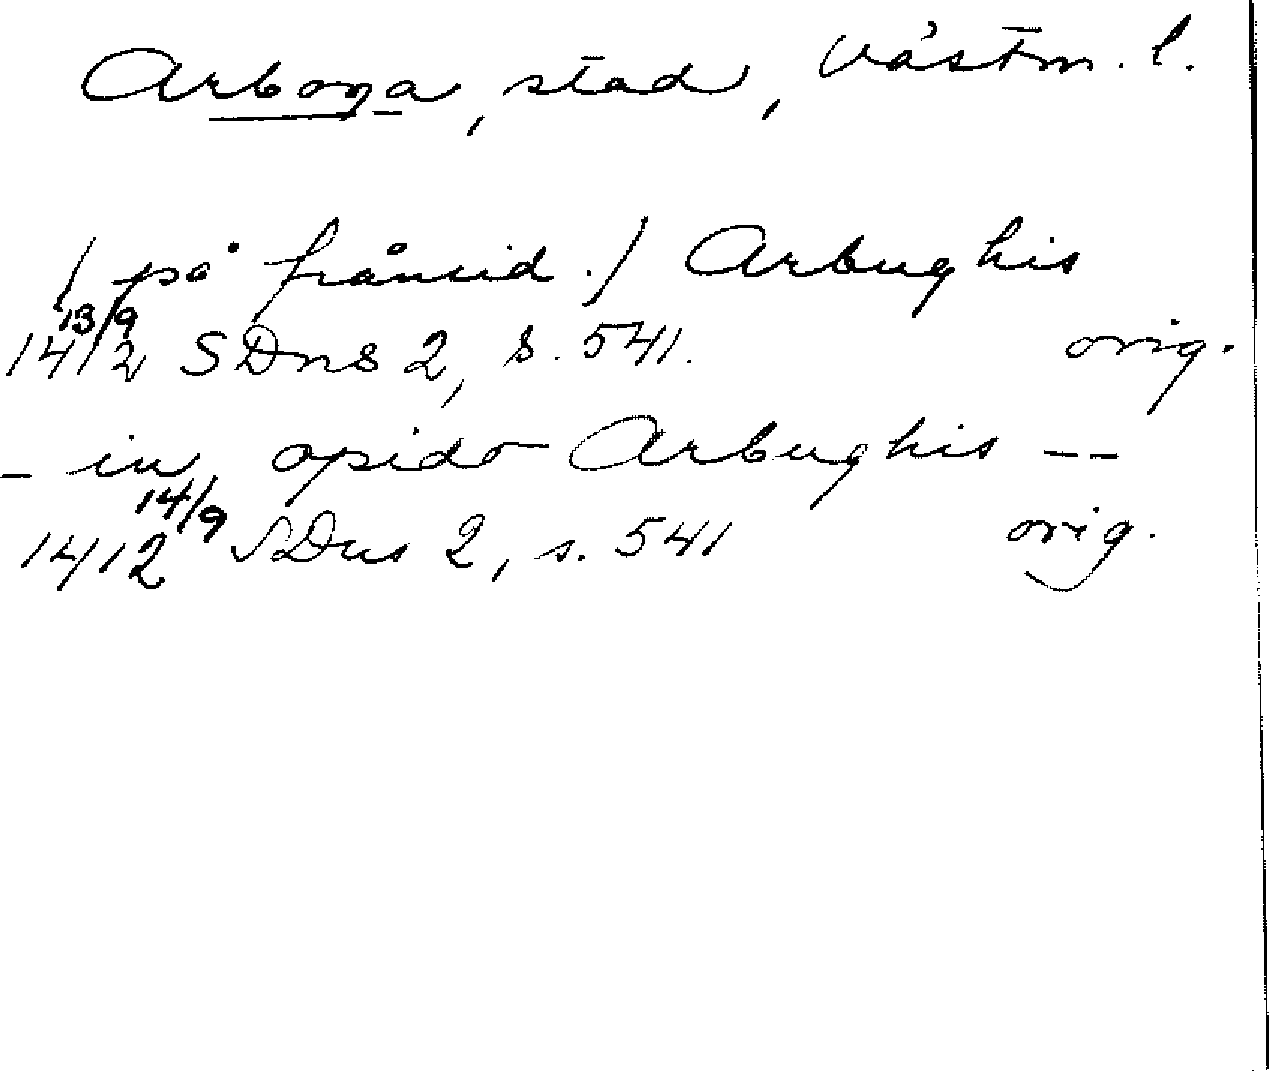 Arboga, stad, Västm. l.
/på frånsid./ Arbughis
13/9
1412 SDns 2, s. 541. orig.
- in opido Arbughis --
14/9
1412 SDns 2, s. 541 orig.